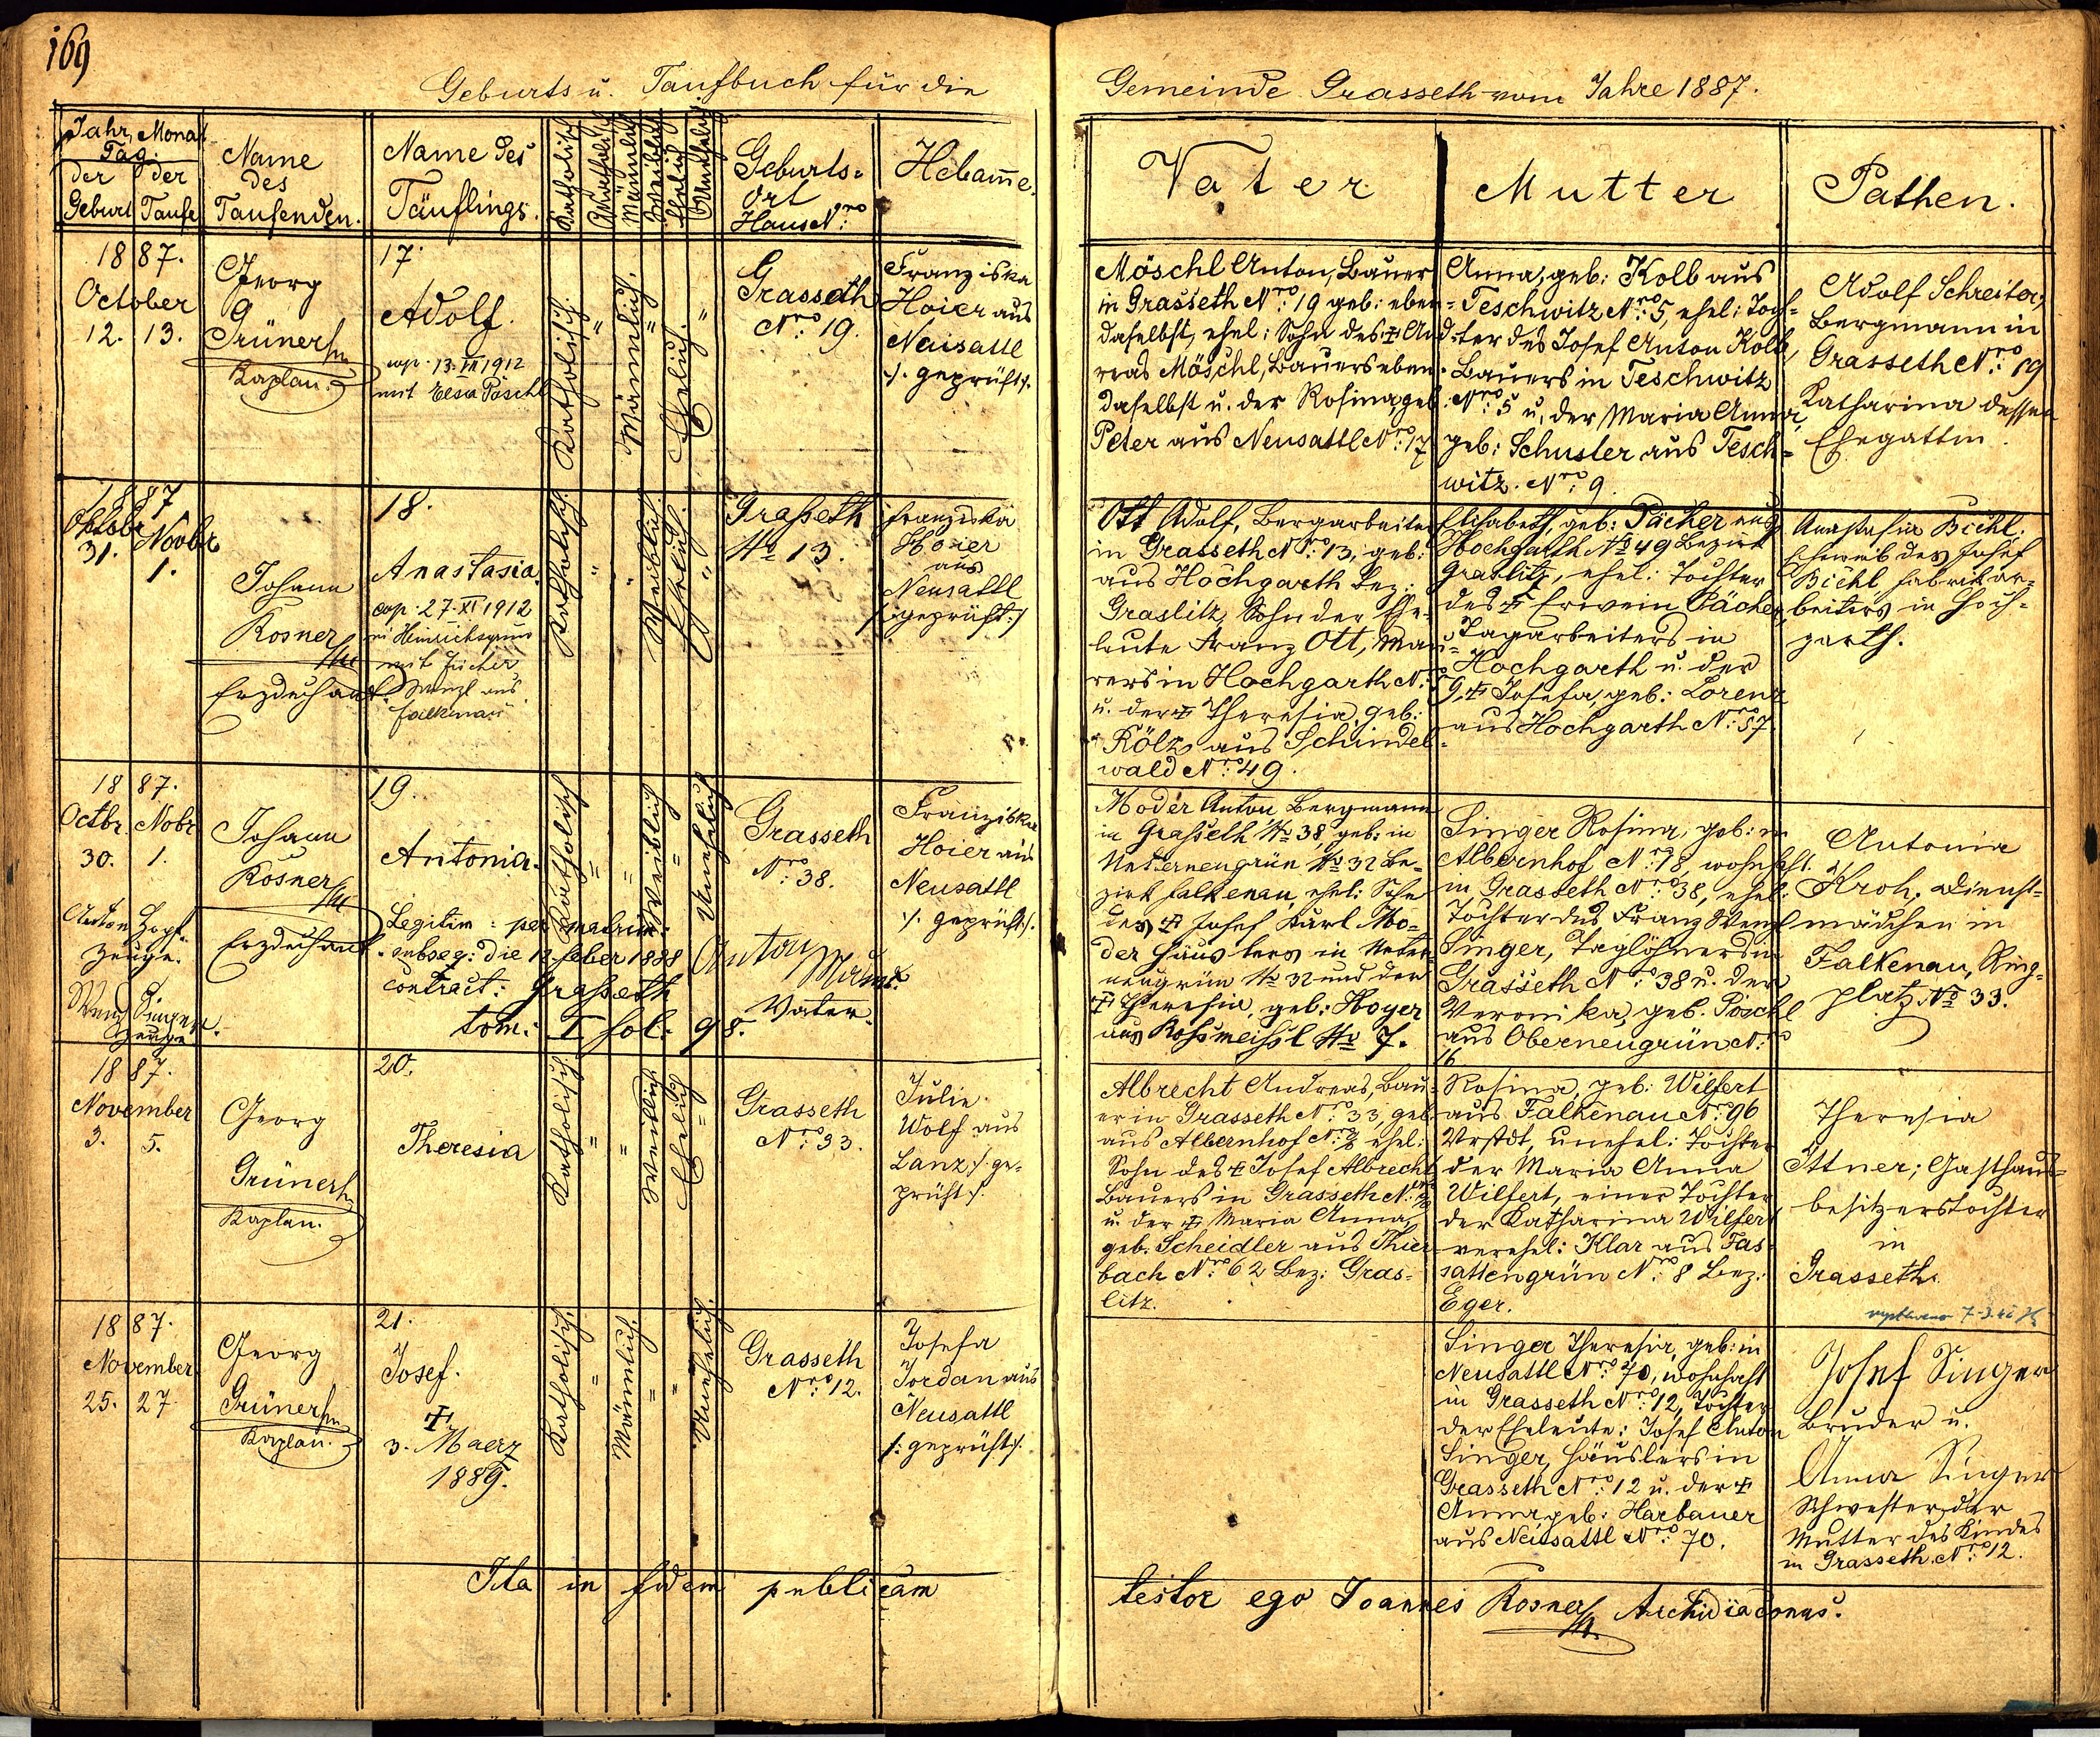 169
Geburts u. Taufbuch für die Gemeinde Grasseth vom Jahre 1887.
Jahr, Monat
Tag:
der Geburt
der Taufe
Name
des
Taufenden.
Name des
Täuflings.
Katholisch
Akatholisch
Männlich
Weiblich
Ehelich
Unehelich
Geburts=
Ort
Haus Nro
Hebamme.
Vater
Mutter
Pathen.
1887.
October
12. 13.
Georg
Grüner
Kaplan.
17
Adolf.
cop. 13. VII 1912
mit Elsa Pöschl
Katholisch.
"
Männlich.
"
Ehelich.
"
Grasseth
Nro 19.
Franziska
Hoier aus
Neusattl
/: geprüft :/.
Möschl Anton, Bauer
in Grasseth Nro: 19 geb: eben=
daselbst, ehel: Sohn des + And=
reas Möschl, Bauers eben=
daselbst u. der Rosina, geb:
Peter aus Neusattl Nro: 17
Anna, geb: Kolb aus
Teschwitz Nro: 5, ehel: Toch=
ter des Josef Anton Kolb,
Bauers in Teschwitz
Nro: 5 u. der Maria Anna,
geb: Schuster aus Tesch=
witz. Nro: 9.
Adolf Schreiter,
Bergmann in
Grasseth Nro: 19
Katharina dessen
Ehegattin.
1887
Oktobr Novbr
31. 1.
Johann
Rosner
Erzdechant
18.
Anastasia.
cop. 27. XI 1912
in Heinrichsgrün
mit
Wenzl aus
Falkenau
Katholisch.
"
"
Weiblich.
Ehelich.
"
Graßeth
No 13.
Franziska
Hoier
aus
Neusattl
/: geprüft :/
Ott Adolf, Bergarbeiter
in Grasseth Nro: 13, geb:
aus Hochgarth Bez:
Graslitz, Sohn der Ehe=
leute Franz Ott, Mau=
rers in Hochgarth Nro
u. der + Theresia, geb:
Rölz aus Schindel=
wald Nro: 49.
Elisabeth, geb: Pächer aus
Hochgarth No 49 Bezirk
Graslitz, ehel: Tochter
des + Erwein Pächer,
Tagarbeiters in
Hochgarth u. der
9, + Josefa, geb: Lorenz
aus Hochgarth Nro: 57.
Anastasia Biehl,
Eheweib des Josef
Biehl Fabrikar=
beiters in Hoch=
garth.
1887.
Octbr. Nobr
30. 1.
Anton Hopf
Zeuge.
Wenz Singer.
Zeuge
Johann
Rosner
Erzdechant
19.
Antonia.
Legitim: per matrim:
subseq: die 12 feber 1888
contract: Graßeth
tom: I fol: 98.
Katholisch
"
"
Weiblich
"
Unehelich
Grasseth
Nro: 38.
Anton
Vater.
Franziska
Hoier aus
Neusattl
/: geprüft :/.
Moder Anton, Bergmann
in Graßeth No 38, geb: in
Unterneugrün No 32 Be=
zirk Falkenau, ehel: Sohn
des + Josef Karl Mo=
der Häuslers in Unter=
neugrün No 32 und der
+ Theresia, geb: Hoyer
aus Roßmeißl No 7.
Singer Rosina, geb: in
Albernhof Nro: 18, wohnhaft
in Grasseth Nro: 38, ehel:
Tochter des Franz Wenzl
Singer, Taglöhners in
Grasseth Nro: 38 u. der
Veronika, geb. Pöschl
aus Oberneugrün Nro
16
Antonia
Kroh, Dienst=
mädchen in
Falkenau, Ring=
platz No 33.
1887.
November
3. 5.
Georg
Grüner
Kaplan.
20.
Theresia
Katholisch.
"
"
Weiblich
Ehelich
"
Grasseth
Nro: 33.
Julie
Wolf aus
Lanz /: ge=
prüft :/.
Albrecht Andreas, Bau=
er in Grasseth Nro: 33, geb:
aus Albernhof Nro: ehel:
Sohn des + Josef Albrecht
Bauers in Grasseth Nro:
u. der + Maria Anna,
geb. Scheidler aus Thier=
bach Nro: 62 Bez: Gras=
litz.
Rosina, geb: Wilfert
aus Falkenau Nro: 96
Vrstdt, unehel: Tochter
der Maria Anna
Wilfert, einer Tochter
der Katharina Wilfert
verehel: Klar aus Fas=
sattengrün Nro: 8 Bez:
Eger.
Theresia
Ittner; Gasthaus=
besitzerstochter
in
Grasseth.
1887.
November
25. 27.
Georg
Grüner
Kaplan.
21.
Josef.
+
3. Maerz
1889.
Katholisch.
"
Männlich.
"
"
Unehelich.
Grasseth
Nro: 12.
Josefa
Jordan aus
Neusattl
/: geprüft :/.
Singer Theresia, geb: in
Neusattl Nro: 70, wohnhaft
in Grasseth Nro: 12, Tochter
der Eheleute: Josef Anton
Singer, Häuslers in
Grasseth Nro: 12 u. der +
Anna, geb: Harbauer
aus Neusattl Nro: 70.
Josef Singer
Bruder u.
Anna Singer
Schwester der
Mutter des Kindes
in Grasseth. Nro: 12.
Ita in fidem publicam testor ego Joannes Rosner Archidiaconus.